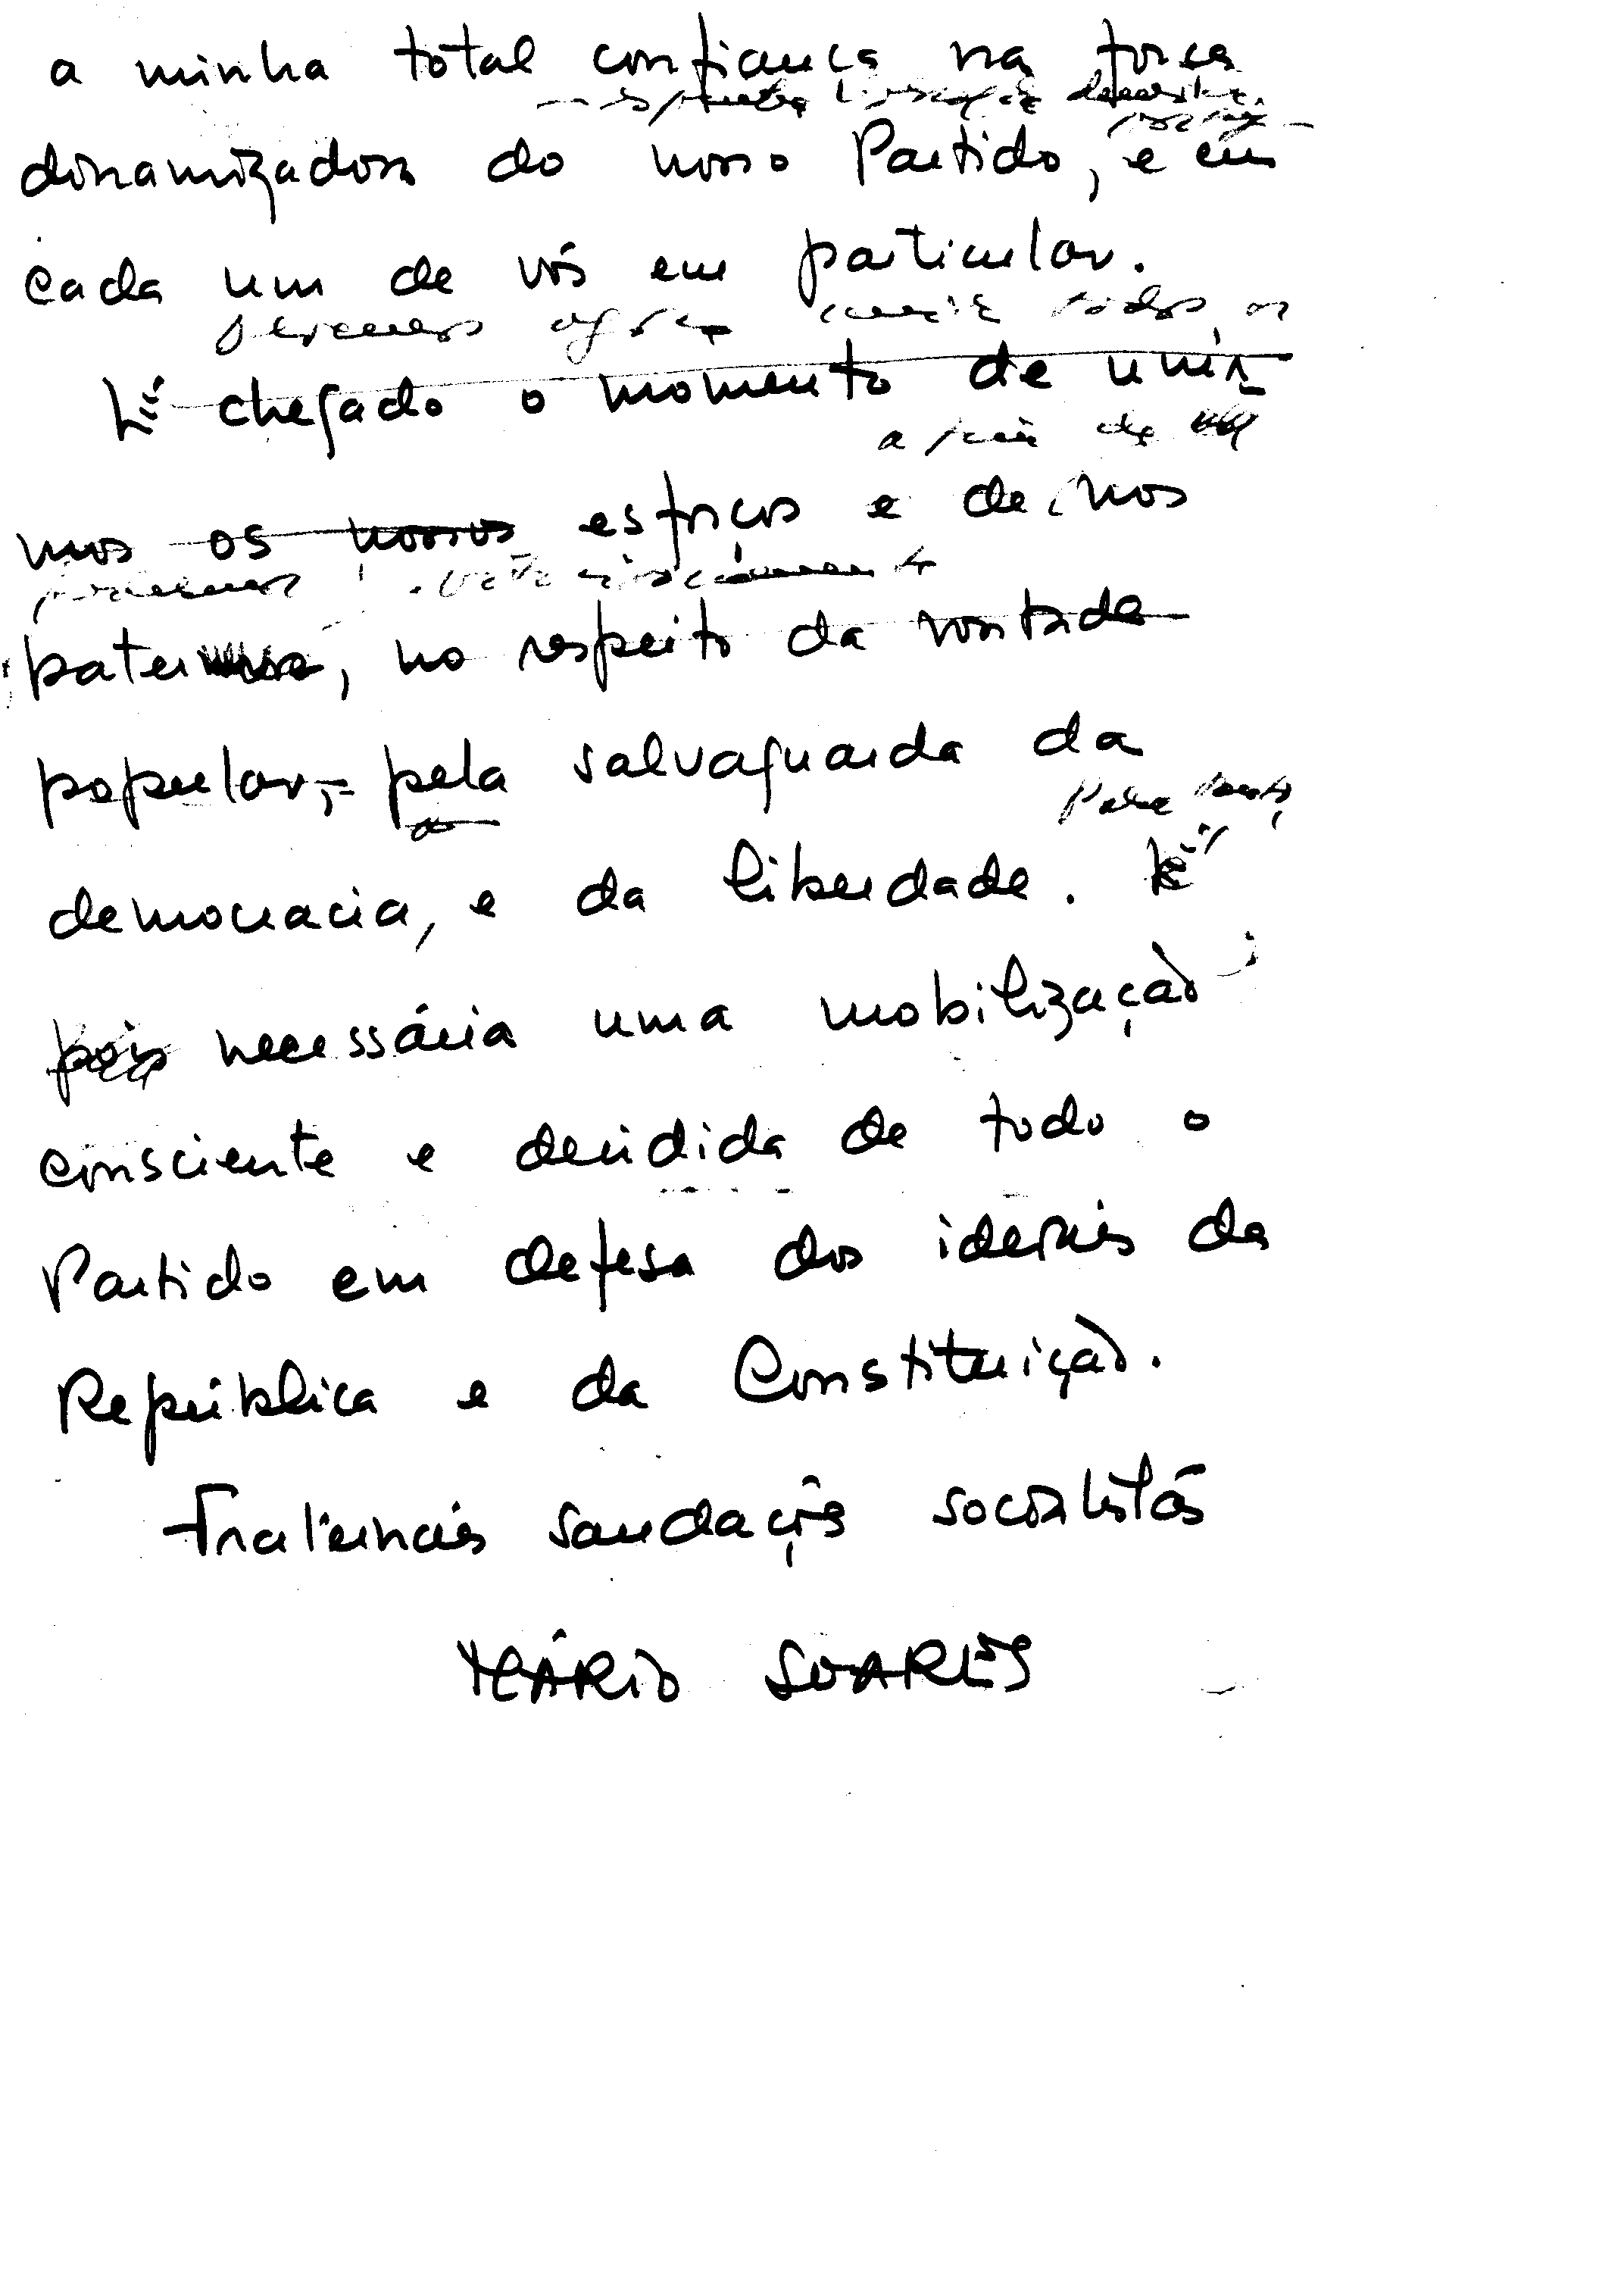 a minha total confiança na força
dinamizadora do nosso Partido, e em
cada um de vós em particular.
devemos agora unir todos os
É chegado o momento de unir-
a fim de
mos os nossos esforços e de nos
podermos
batermos, no respeito da vontade
popular, pela salvaguarda da
Para tanto,
democracia, e da liberdade. É
pois necessária uma mobilização
consciente e decidida de todo o
Partido em defesa dos ideais da
República e da Constituição.
Fraternais saudações socialistas
MÁRIO SOARES